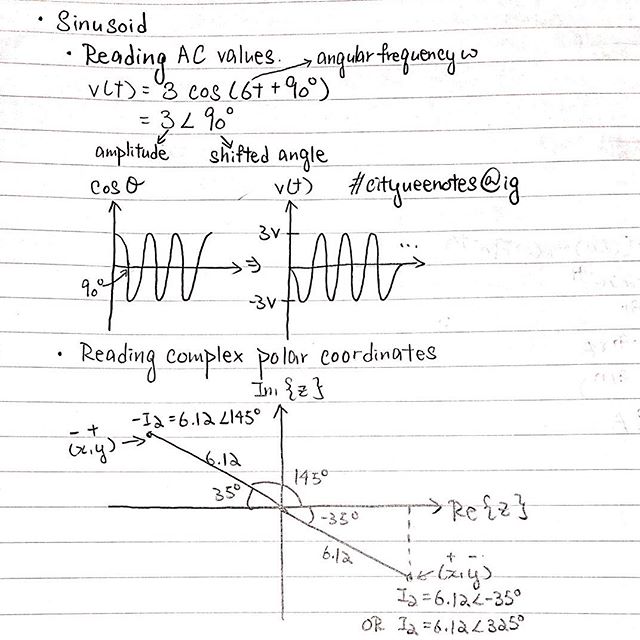 • Sinusoid
• Reading AC values. → angular frequency ω
v(t) = 3 cos (6t + 90°)
= 3 ∠ 90°
amplitude shifted angle
cos θ v(t) #cityueenotes@ig
3V
90° ⇒ ...
-3V
• Reading complex polar coordinates
Im {z}
-I2 = 6.12 ∠145°
- +
(x,y) →
6.12
145°
35°
-35° Re{z}
6.12
+ -
(x,y)
I2 = 6.12∠-35°
OR I2 = 6.12∠325°